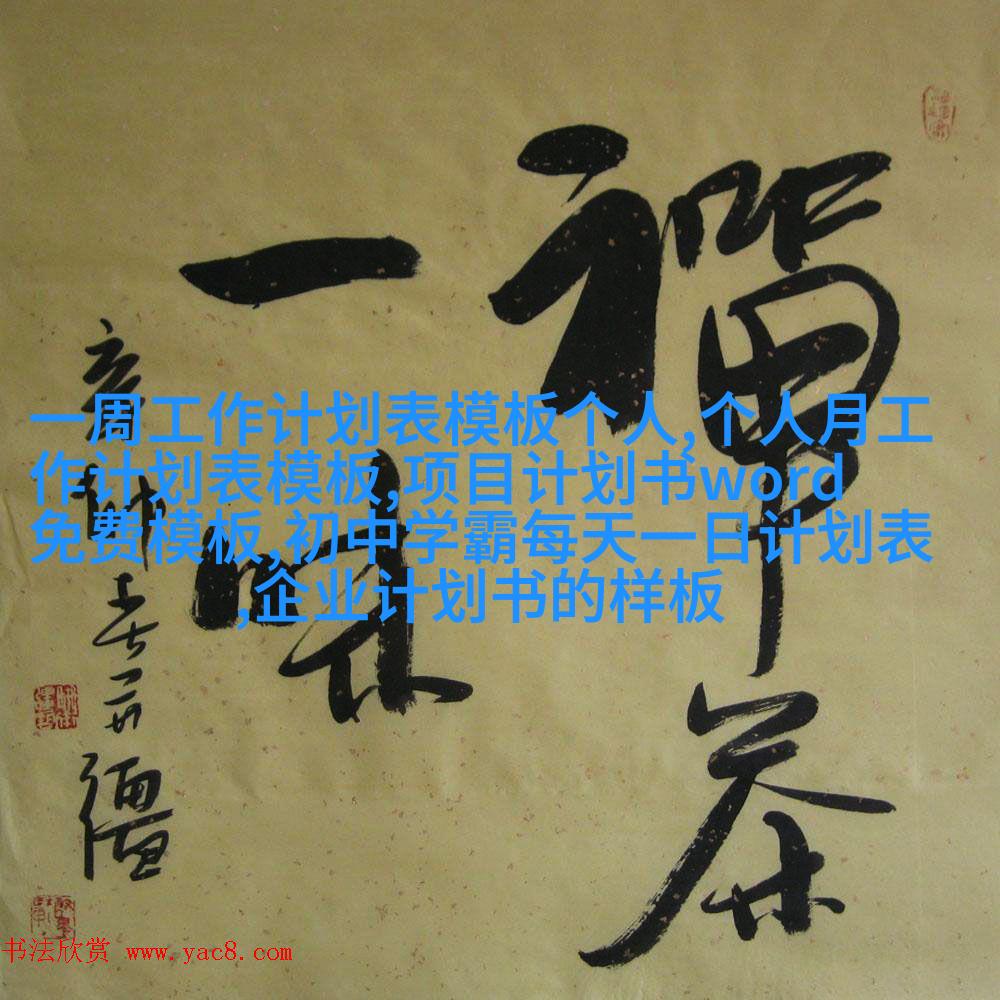 禪茶
一味
一周工作计划表模板个人,个人月工
作计划表模板,项目计划书word
免费模板,初中学霸每天一日计划表
,企业计划书的样板
书法欣赏 www.yac8.com